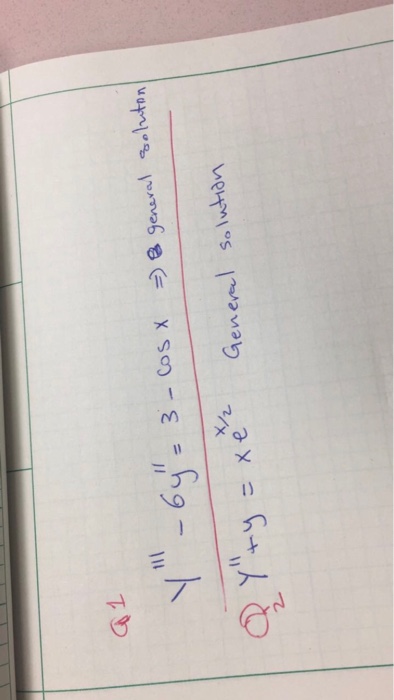 Q1
y''' - 6y'' = 3 - cos x ⇒ general solution
Q2 y'' + y = x e^{x/2} General solution